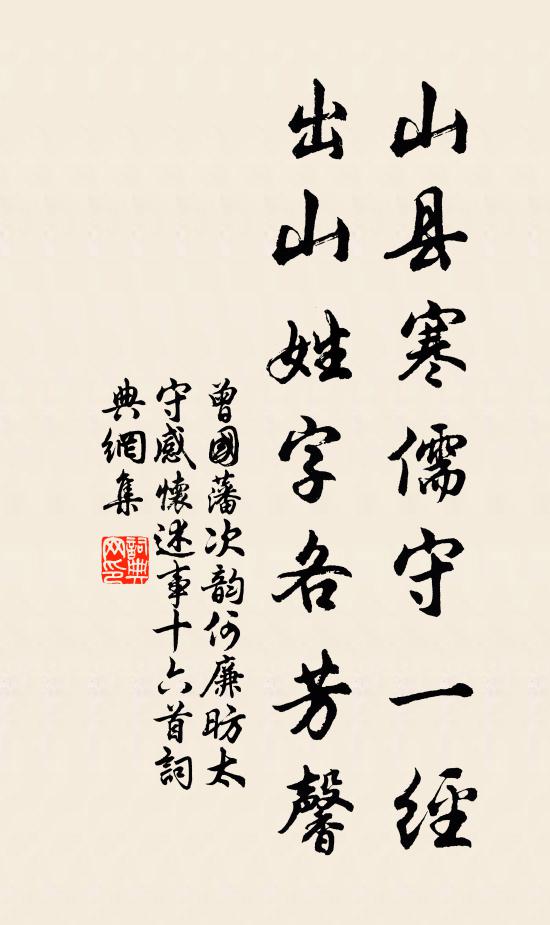 山县寒儒守一经
出山姓字各芳馨
曾國藩次韵何廉昉太
守感懷述事十六首詞
典網集
詞典网印